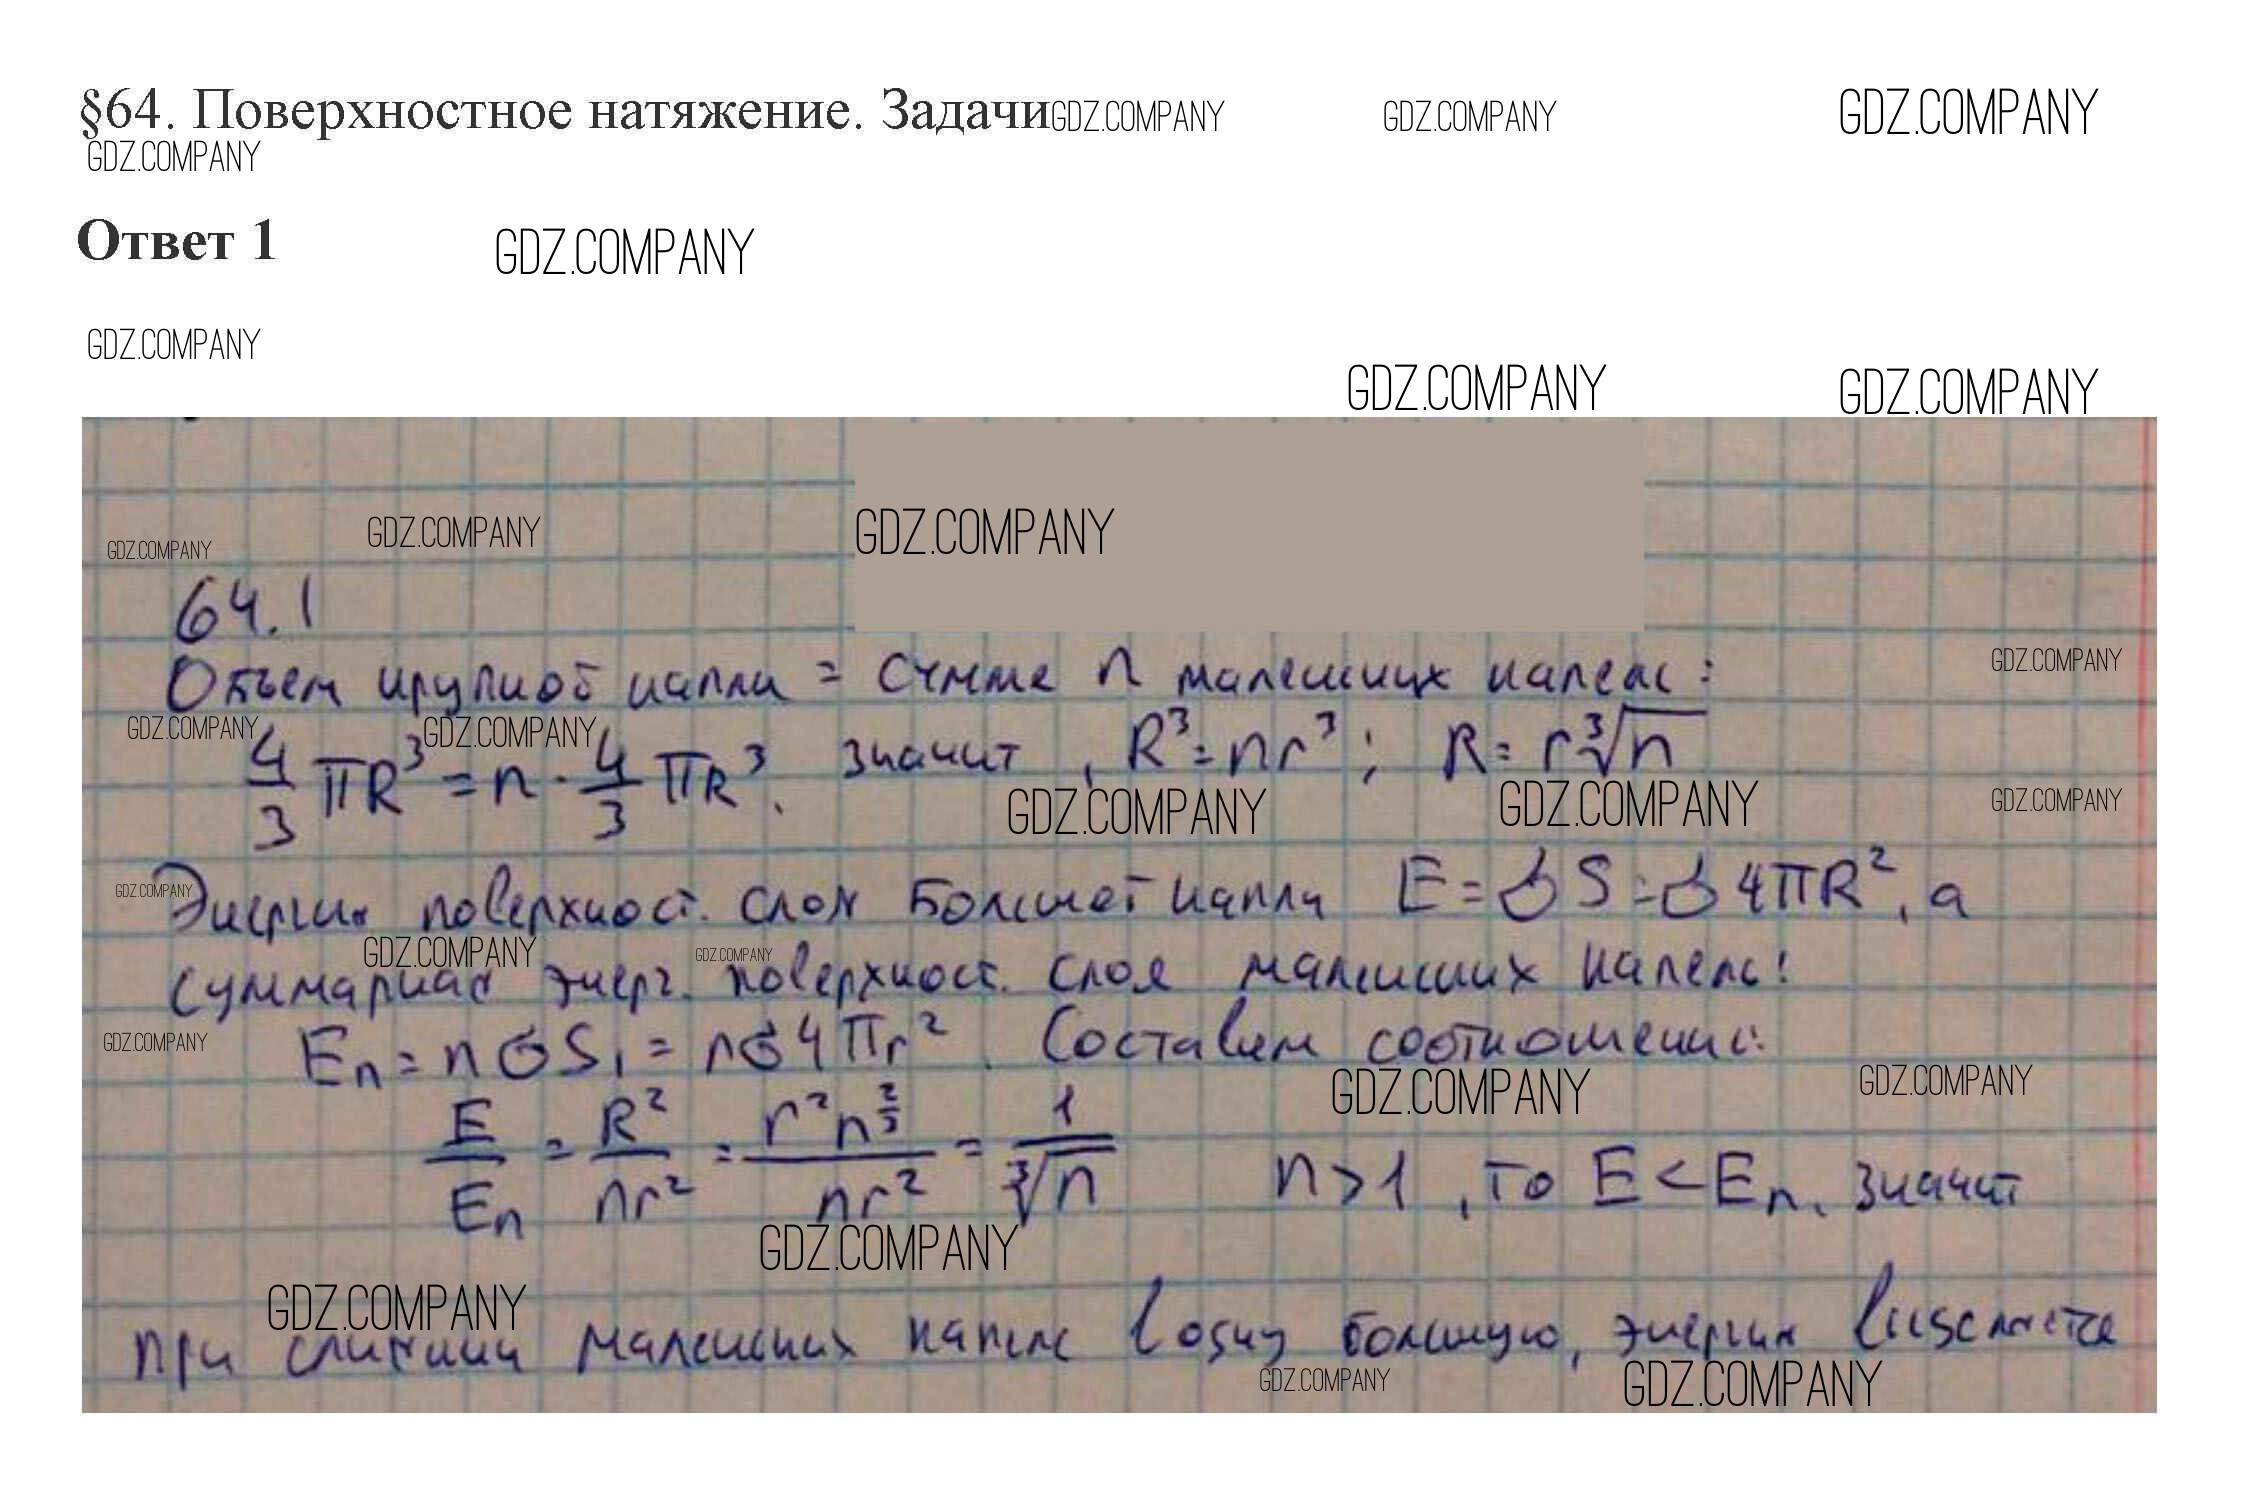 §64. Поверхностное натяжение. Задачи GDZ.COMPANY GDZ.COMPANY GDZ.COMPANY
GDZ.COMPANY
Ответ 1 GDZ.COMPANY
GDZ.COMPANY
GDZ.COMPANY GDZ.COMPANY
GDZ.COMPANY GDZ.COMPANY GDZ.COMPANY
64.1
Объем крупной капли = сумме n маленьких капель:
GDZ.COMPANY
GDZ.COMPANY GDZ.COMPANY
4/3 πR³ = n · 4/3 πR³. значит, R³ = nr³; R = r∛n
GDZ.COMPANY GDZ.COMPANY GDZ.COMPANY
Энергия поверхност. слоя большой капли E = σS = σ4πR², а
GDZ.COMPANY
GDZ.COMPANY GDZ.COMPANY
суммарная энерг. поверхност. слоя маленьких капель:
Eₙ = nσS₁ = nσ4πr². Составим соотношение:
GDZ.COMPANY
GDZ.COMPANY GDZ.COMPANY
E/Eₙ = R²/nr² = r²n^(2/3)/nr² = 1/∛n n>1, то E < Eₙ. значит
GDZ.COMPANY
GDZ.COMPANY
при слиянии маленьких капель в одну большую, энергия выделяется
GDZ.COMPANY GDZ.COMPANY